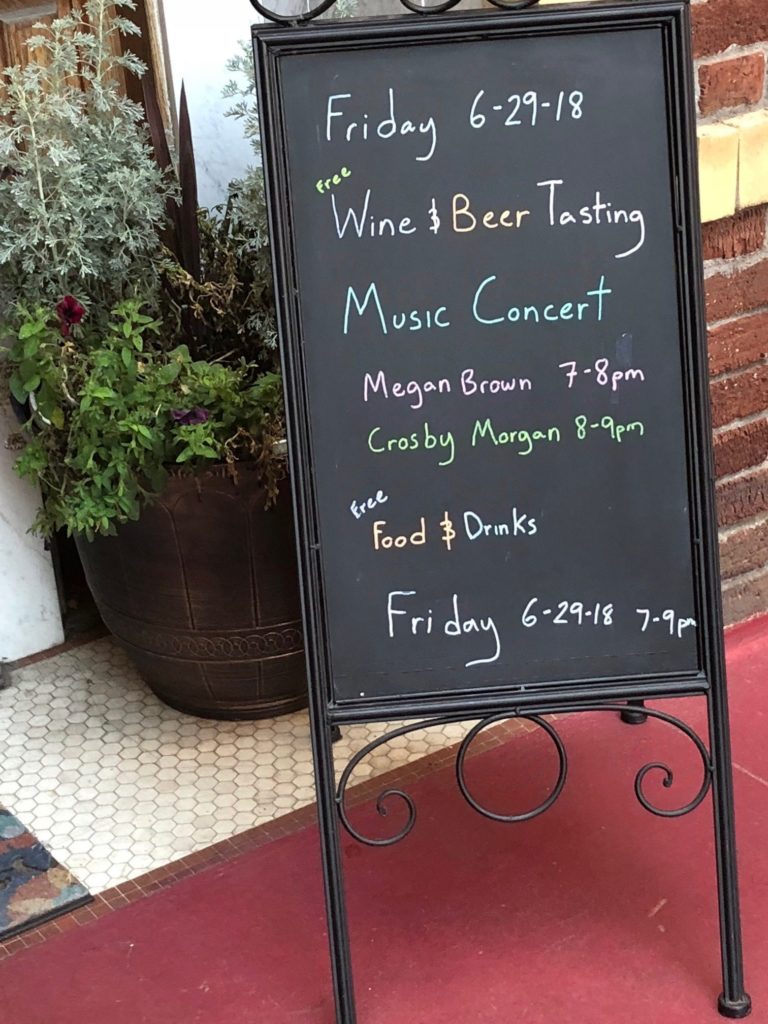 Friday 6-29-18
Free
Wine & Beer Tasting
Music Concert
Megan Brown 7-8pm
Crosby Morgan 8-9pm
Free
Food & Drinks
Friday 6-29-18 7-9pm